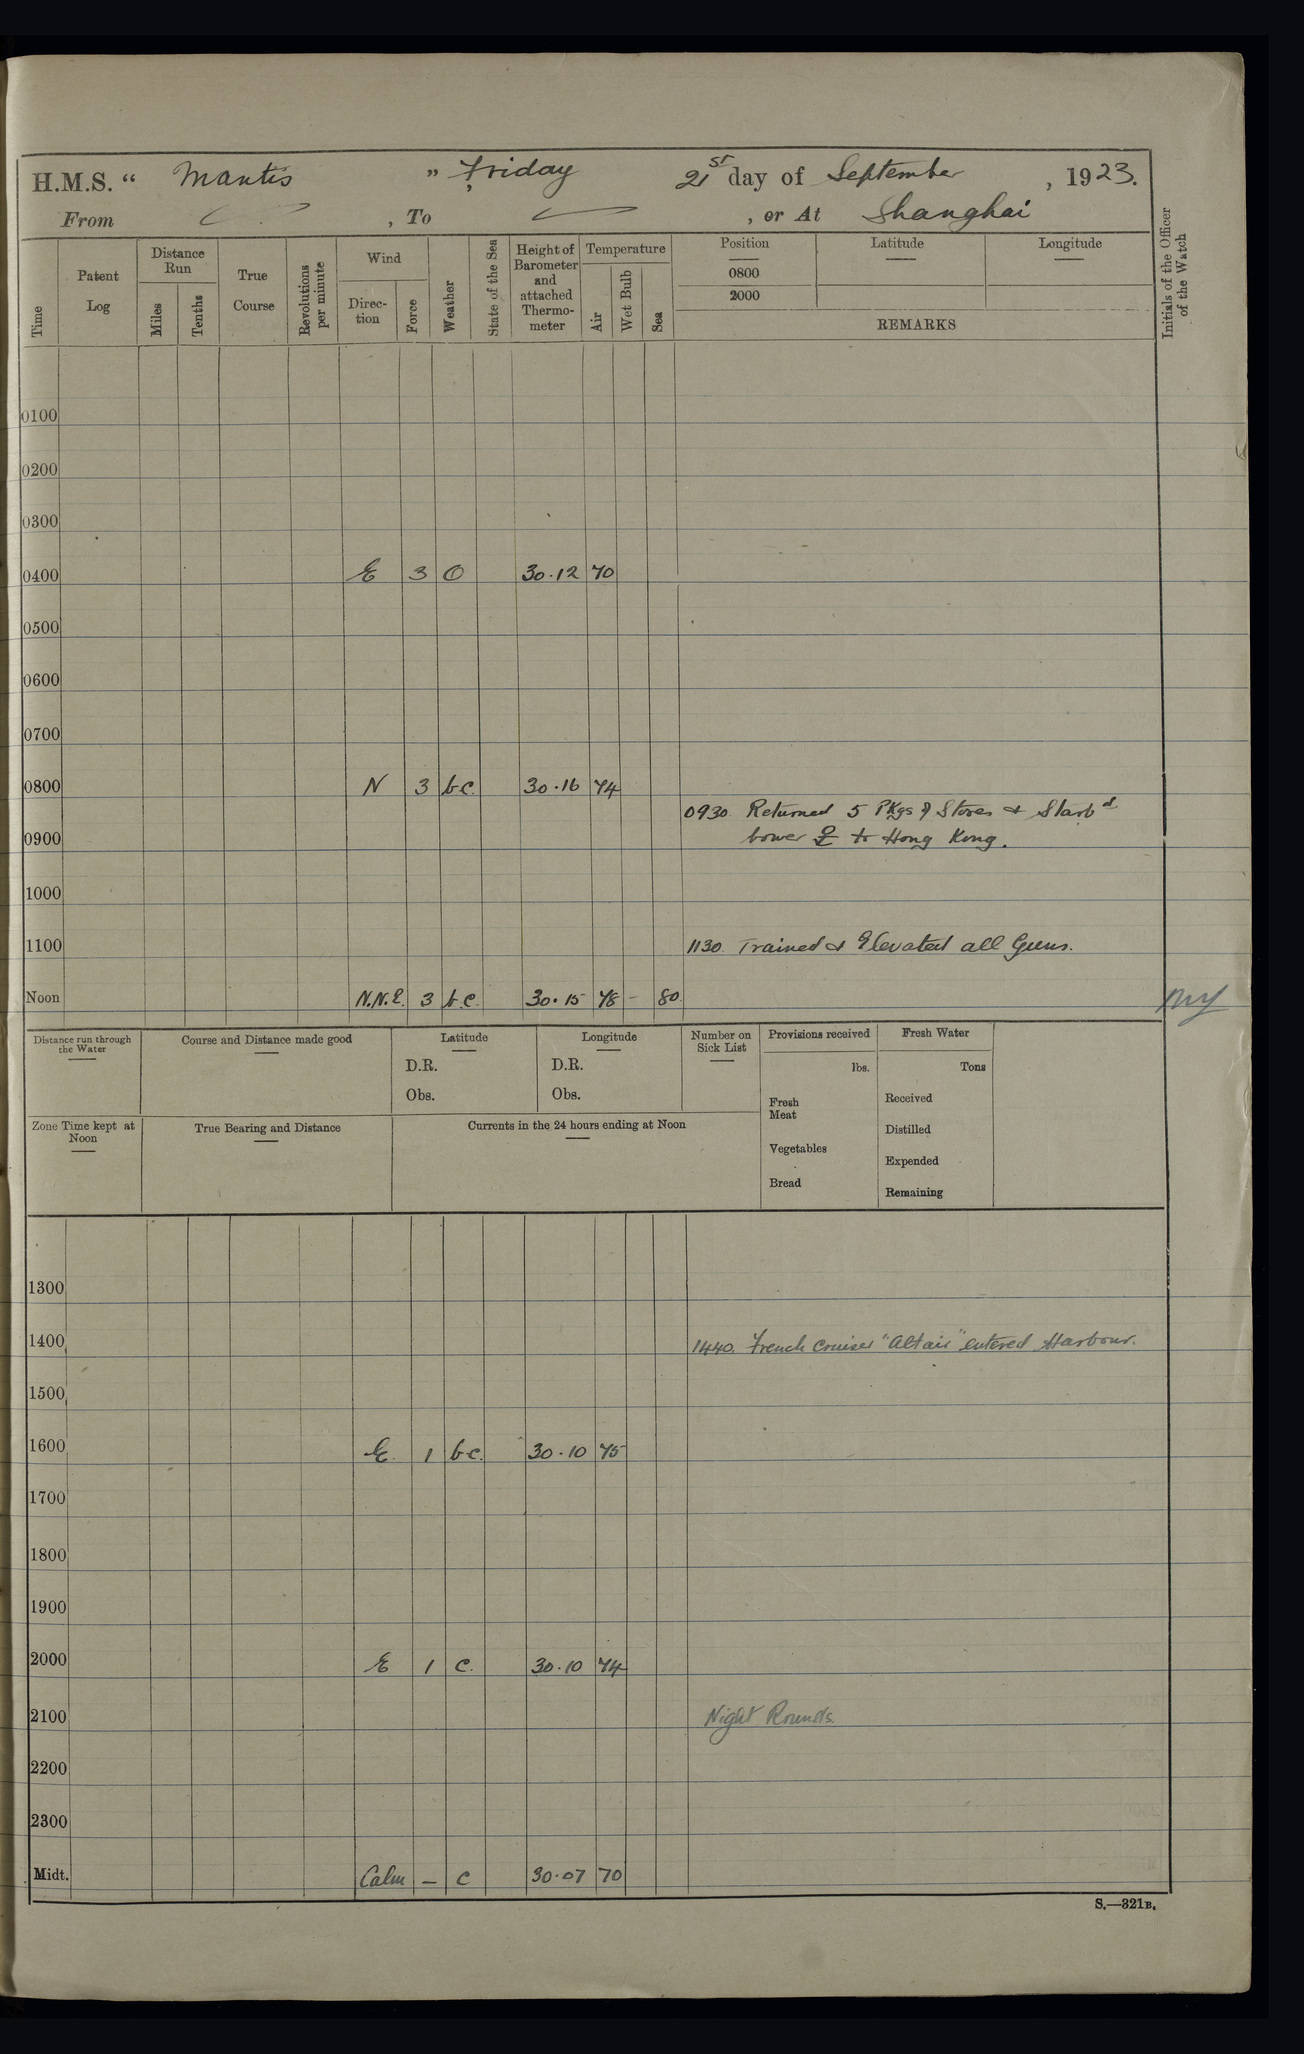 H.M.S. “ Mantis ” Friday 21st day of September , 1923.
From , To , or At Shanghai
Time
Patent Log
Distance Run
Miles
Tenths
True Course
Revolutions per minute
Wind
Direc-tion
Force
Weather
State of the Sea
Height of Barometer and attached Thermo-meter
Temperature
Air
Wet Bulb
Sea
Position
0800
2000
Latitude
Longitude
REMARKS
Initials of the Officer of the Watch
0100
0200
0300
0400 E 3 O 30.12 70
0500
0600
0700
0800 N 3 b.c. 30.16 74
0930 Returned 5 Pkgs of Stores & Starbd
0900 bower to Hong Kong.
1000
1100 1130. Trained & Elevated all Guns.
Noon N.N.E. 3 b.c. 30.15 78 – 80
Distance run through the Water
Course and Distance made good
Latitude
D.R.
Obs.
Longitude
D.R.
Obs.
Number on Sick List
Provisions received
lbs.
Fresh Meat
Vegetables
Bread
Fresh Water
Tons
Received
Distilled
Expended
Remaining
Zone Time kept at Noon
True Bearing and Distance
Currents in the 24 hours ending at Noon
1300
1400 1440. French Cruiser "Altair" entered Harbour.
1500
1600 E. 1 b.c. 30.10 75
1700
1800
1900
2000 E 1 c. 30.10 74
2100 Night Rounds.
2200
2300
Midt. Calm – c 30.07 70
S.—321B.